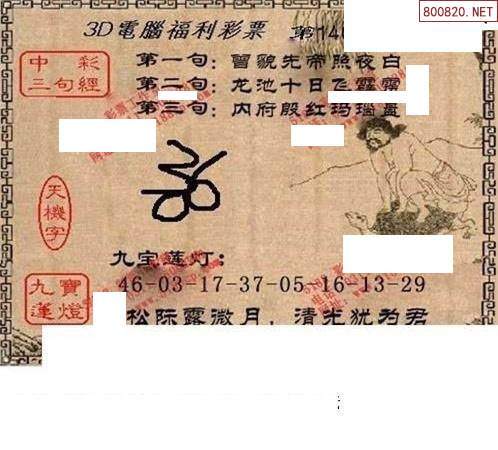 800820.NET
3D電腦福利彩票 第14
中彩
三句經
第一句：曾貌先帝照夜白
第二句：龙池十日飞霹雳
第三句：内府殷红玛瑙盘
天機字
九宝莲灯：
九寶
蓮燈
46-03-17-37-05-16-13-29
松际露微月，清光犹为君